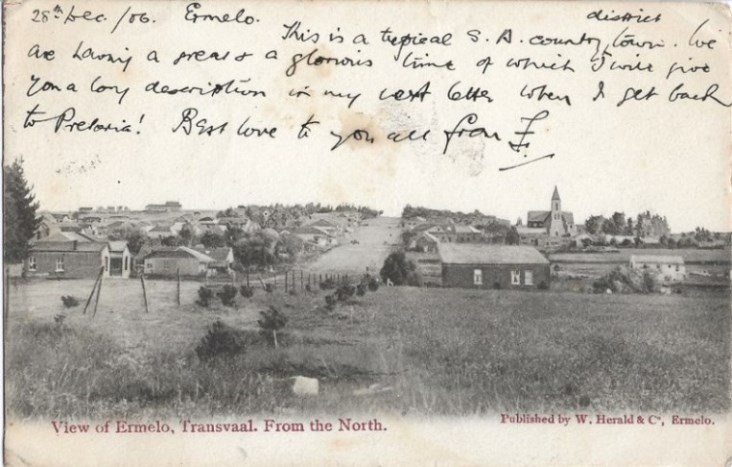 28th Dec. /06. Ermelo.
district
This is a typical S. A. country town. We
are having a great & a glorious time of which I will give
you a long description in my next letter when I get back
to Pretoria! Best love to you all from F.
View of Ermelo, Transvaal. From the North.
Published by W. Herald & Co, Ermelo.